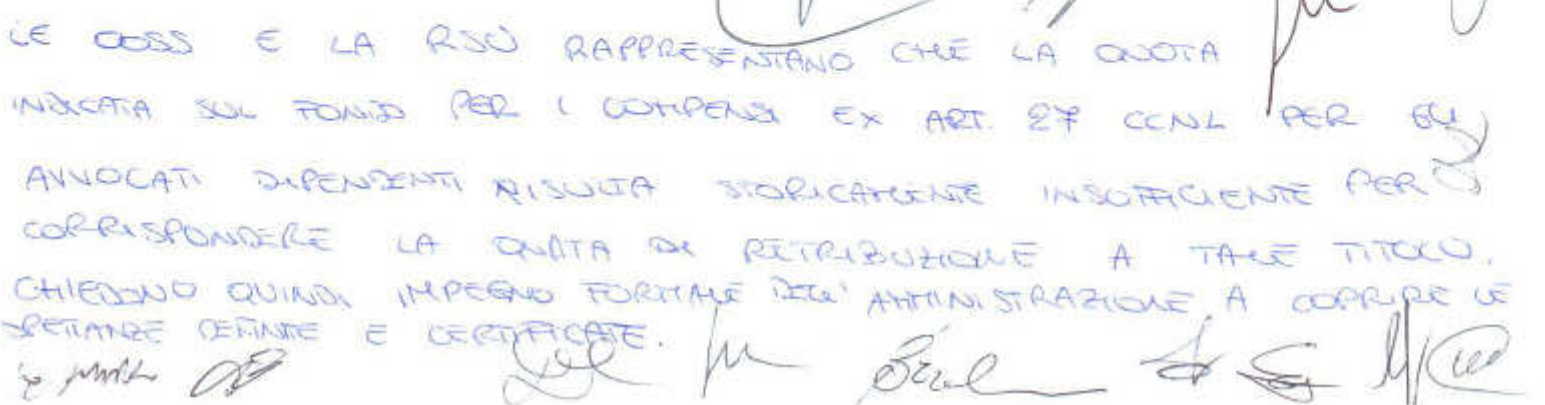 LE OOSS E LA RSU RAPPRESENTANO CHE LA QUOTA
INDICATA SUL FONDO PER I COMPENSI EX ART. 27 CCNL PER GLI
AVVOCATI DIPENDENTI RISULTA STORICAMENTE INSUFFICIENTE PER
CORRISPONDERE LA QUOTA DI RETRIBUZIONE A TALE TITOLO.
CHIEDONO QUINDI IMPEGNO FORMALE DELL' AMMINISTRAZIONE A COPRIRE LE
SPETTANZE DEFINITE E CERTIFICATE.